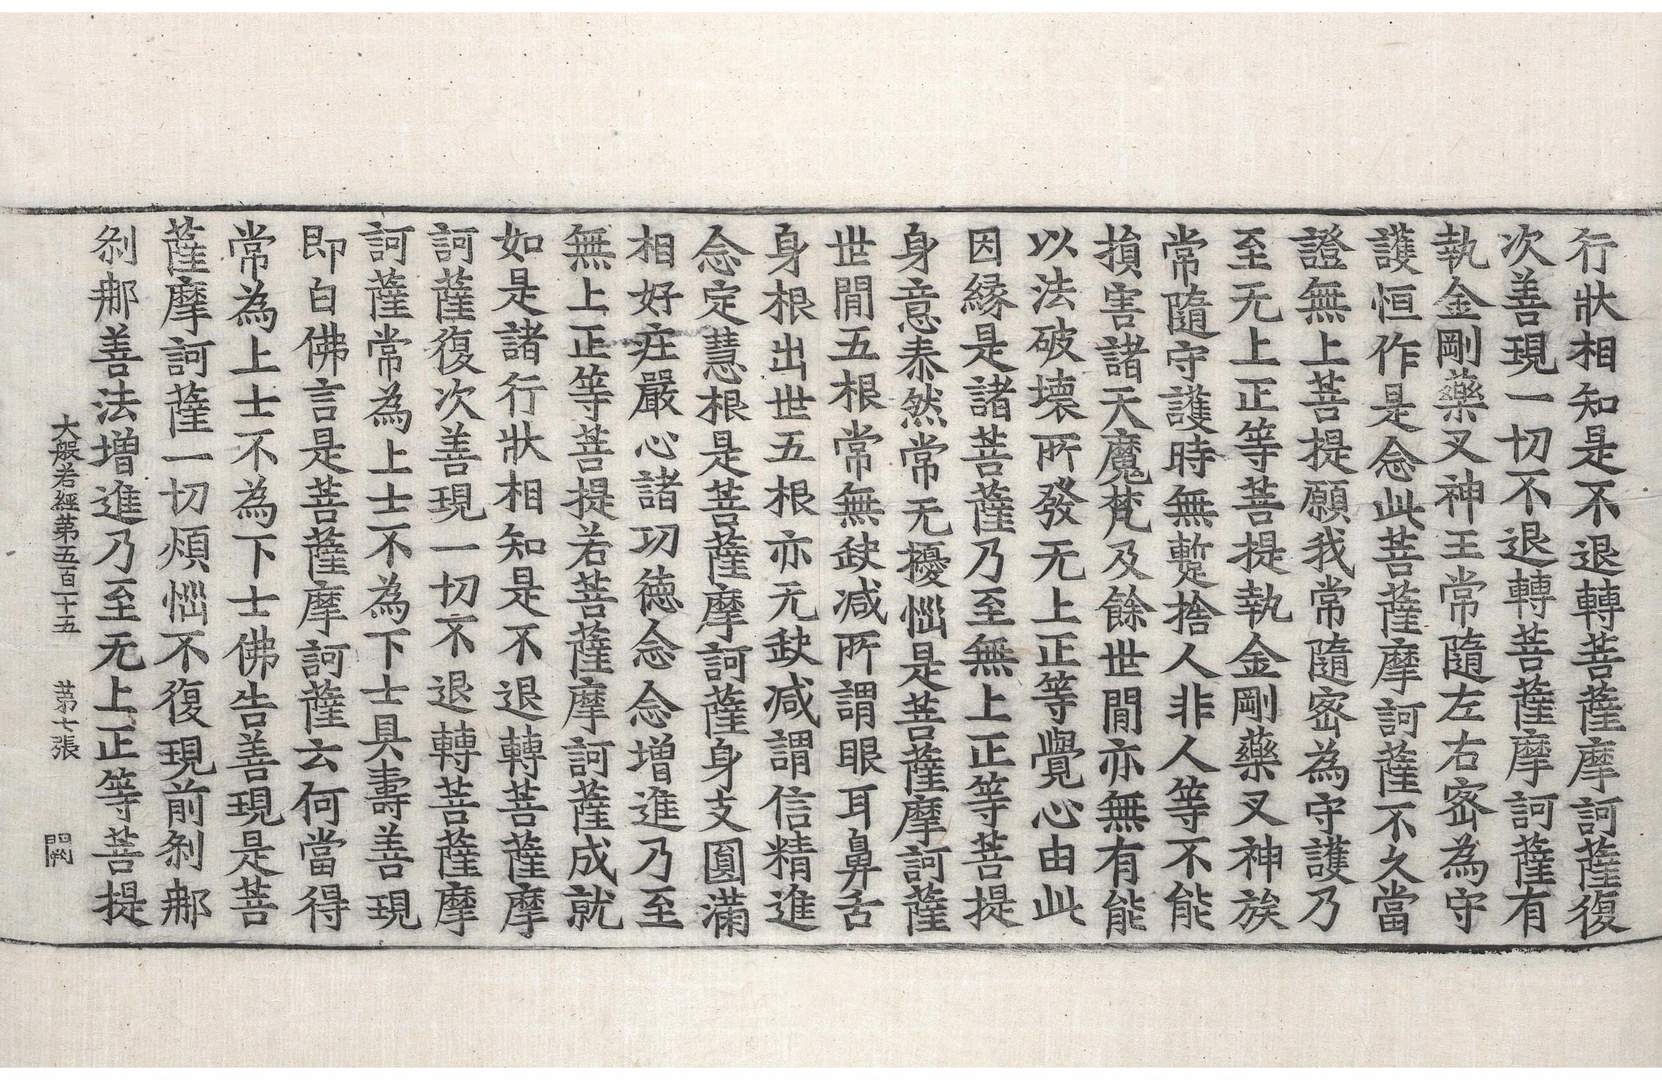 行狀相知是不退轉菩薩摩訶薩復
次善現一切不退轉菩薩摩訶薩有
執金剛藥叉神王常隨左右密為守
護恒作是念此菩薩摩訶薩不久當
證無上菩提願我常隨密為守護乃
至无上正等菩提執金剛藥叉神族
常隨守護時無暫捨人非人等不能
損害諸天魔梵及餘世間亦無有能
以法破壞所發无上正等覺心由此
因緣是諸菩薩乃至無上正等菩提
身意泰然常无擾惱是菩薩摩訶薩
世間五根常無缺減所謂眼耳鼻舌
身根出世五根亦无缺減謂信精進
念定慧根是菩薩摩訶薩身支圓滿
相好庄嚴心諸功德念念增進乃至
無上正等菩提若菩薩摩訶薩成就
如是諸行狀相知是不退轉菩薩摩
訶薩復次善現一切不退轉菩薩摩
訶薩常為上士不為下士具壽善現
即白佛言是菩薩摩訶薩云何當得
常為上士不為下士佛告善現是菩
薩摩訶薩一切煩惱不復現前剎那
剎那善法增進乃至无上正等菩提
大般若經第五百一十五 第七張